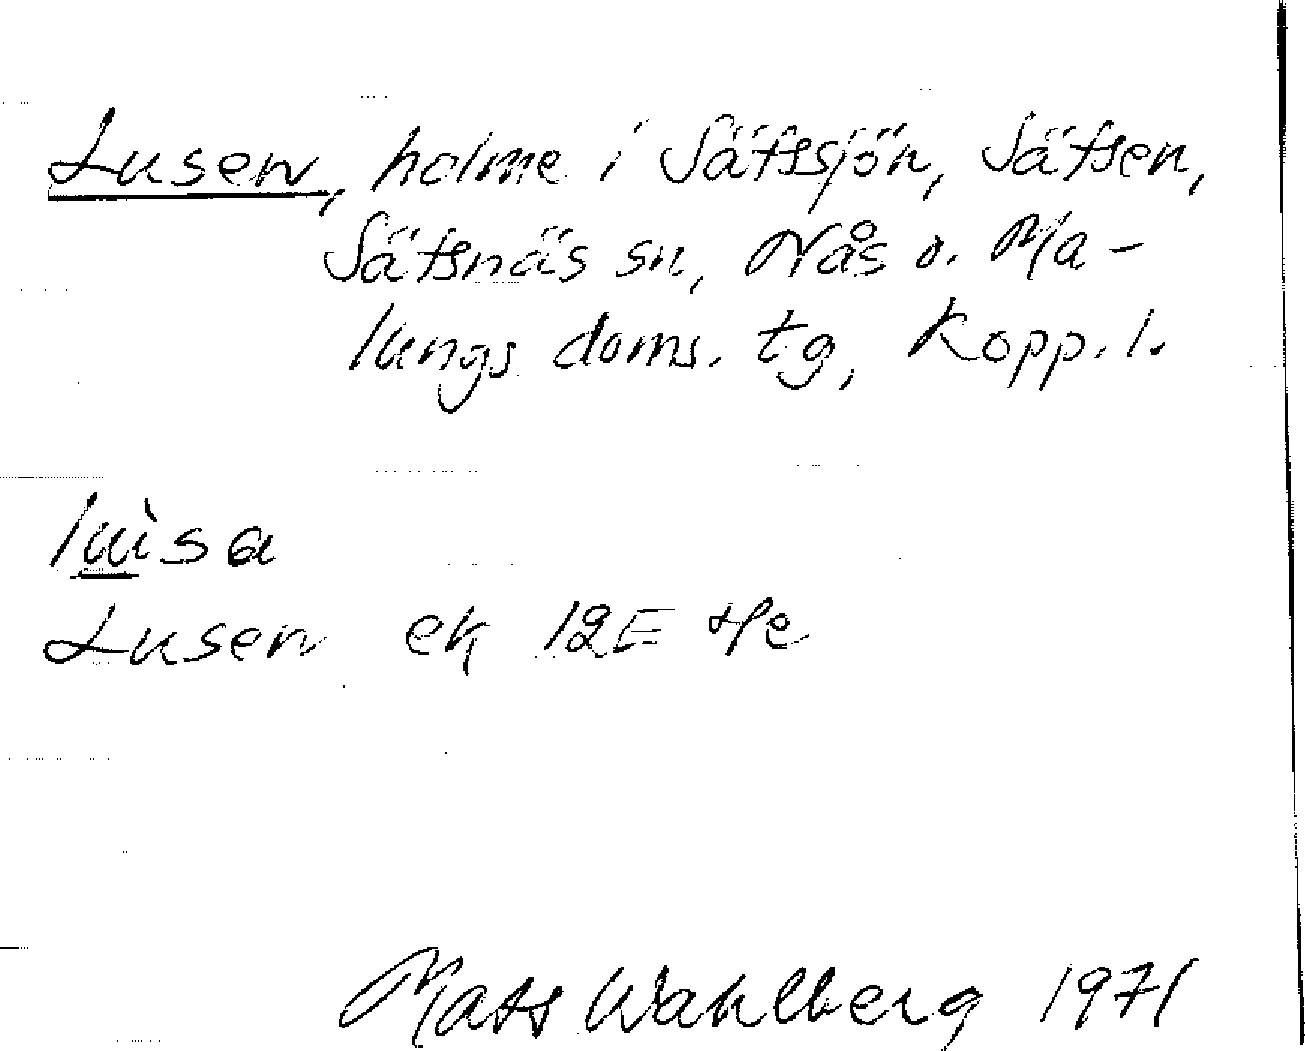 Lusen, holme i Sätssjön, Sätsen,
Sätsnäs sn, Nås o. Ma-
lungs doms. tg, Kopp. l.
Lusen ek 12E
Mats Wahlberg 1971